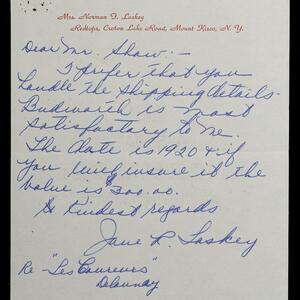 Mrs. Norman F. Laskey
Redtops, Croton Lake Road, Mount Kisco, N. Y.
Dear Mr. Shaw:-
I prefer that you
handle the shipping details-
Budworth is most
satisfactory to me.
The date is 1920 & if
you will insure it the
value is $300.00.
& kindest regards
Jane R. Laskey
Re - "Les Coureurs"
Delaunay